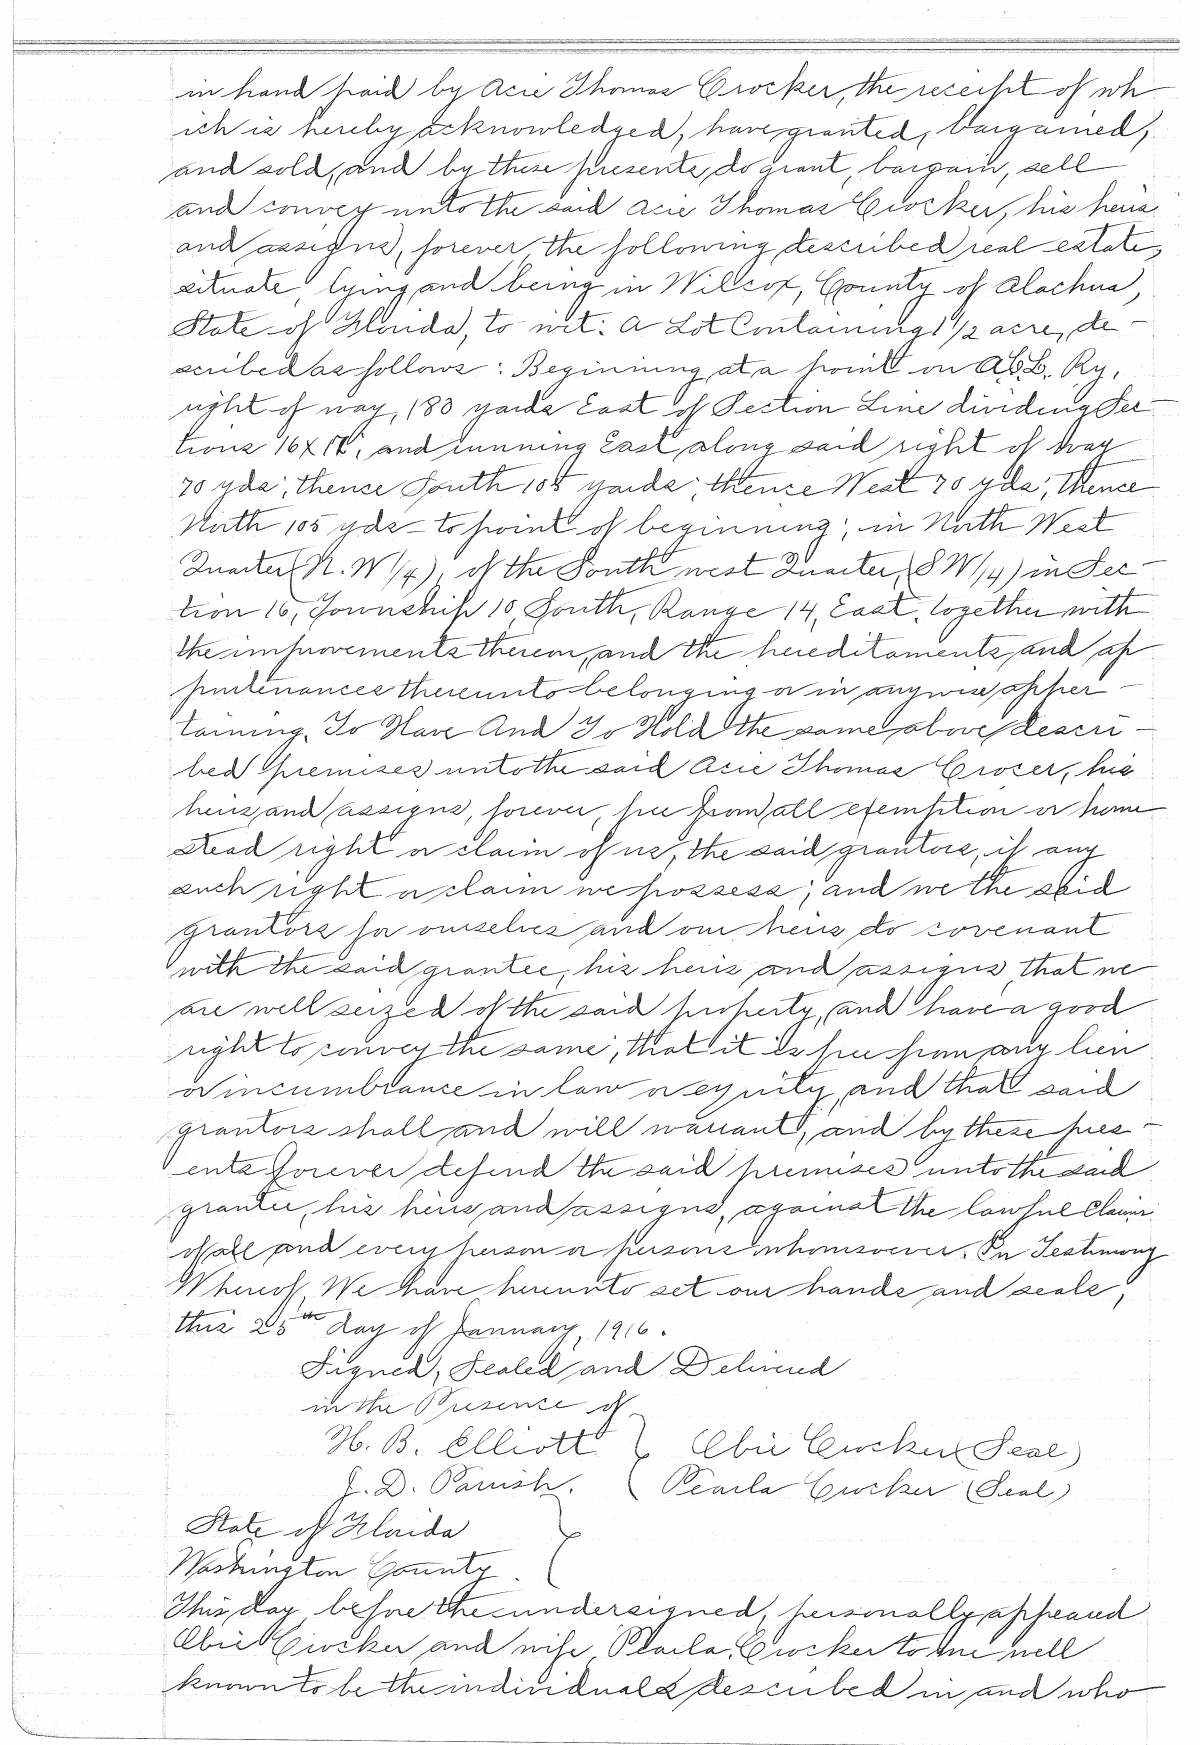 in hand paid by Acie Thomas Crocker, the receipt of wh
ich is hereby acknowledged, have granted, bargained,
and sold, and by these presents, do grant, bargain, sell
and convey unto the said Acie Thomas Crocker, his heirs
and assigns, forever, the following described real estate,
situate, lying and being in Wilcox, County of Alachua,
State of Florida, to wit: A Lot Containing 1 1/2 acre, de-
scribed as follows: Beginning at a point on A.C.L. Ry,
right of way, 183 yards East of Section Line dividing Sec-
tions 16 & 17, and running East along said right of way
70 yds; thence South 105 yards; thence West 70 yds; thence
North 105 yds - to point of beginning; in North West
Quarter (N.W 1/4), of the South west Quarter, (S W 1/4) in Sec-
tion 16, Township 10 South, Range 14, East. together with
the improvements thereon, and the hereditaments and ap
purtenances thereunto belonging or in anywise apper-
taining. To Have And To Hold the same above descri-
bed premises unto the said Acie Thomas Crocer, his
heirs and assigns, forever, free from all exemption or home
stead right or claim of us, the said grantors, if any
such right or claim we possess; and we the said
grantors for ourselves and our heirs do covenant
with the said grantee, his heirs and assigns, that we
are well seized of the said property, and have a good
right to convey the same; that it is free from any lien
or incumbrance in law or equity, and that said
grantors shall and will warrant, and by these pres-
ents forever defend the said premises unto the said
grantee, his heirs and assigns, against the lawful claims
of all and every person or persons whomsoever. In Testimony
Whereof, We have hereunto set our hands and seals,
this 25th day of January, 1916.
Signed, Sealed and Delivered
in the Presence of
H. B. Elliott } Obie Crocker (Seal)
J. D. Parrish. ( Pearla Crocker (Seal)
State of Florida }
Washington County.
This day before the undersigned, personally appeared
Obie Crocker and wife, Pearla Crocker to me well
known to be the individuals described in and who